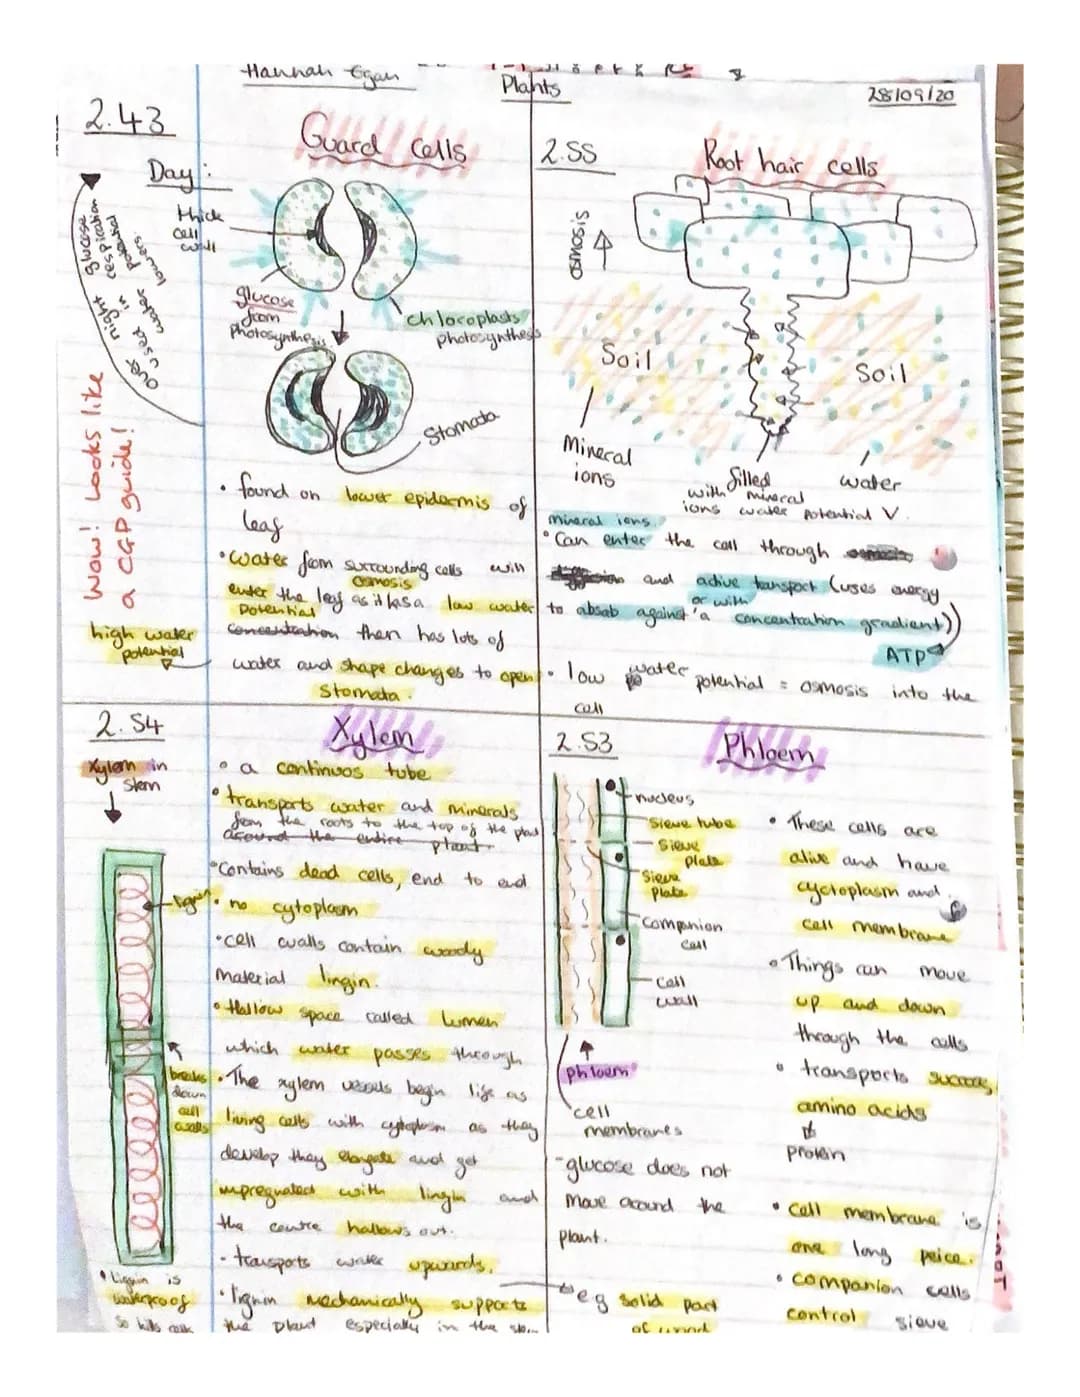 Hannah Egan
Plants
28/09/20
2.43
Guard cells
Day:
thick
cell
wall
glucose
from
Photosynthesis
chloroplasts
photosynthesis
Stomata
over night glucose
used in respiration
water potential
lowers.
Wow! Looks like
a CGP guide!
• found on lower epidermis of
leaf
• water from surrounding cells will
osmosis
enter the leaf as it has a low water
Potential
concentration then has lots of
water and shape changes to open
Stomata.
high water
potential
2.55
Root hair cells
osmosis
Soil
Soil
Mineral
ions
filled
with mineral
ions water potential V.
water
mineral ions.
• Can enter the cell through
and active transport (uses energy
or with
to absab against a concentration gradient))
ATP
• low water potential = osmosis into the
cell
2.54
Xylem
Xylem in
stem
lignin
breaks
down
cell
walls
• a continuos tube
• transports water and minerals
from the roots to the top of the plant
around the entire plant.
• Contains dead cells, end to end
• no cytoplasm
• cell walls contain woody
material lingin.
• Hallow space called lumen
which water passes through
• The xylem vessels begin life as
living cells with cytoplasm as they
develop they elongate and get
impregnated with lingin and
the centre hallows out.
- transports water upwards.
• lignin mechanically supports
the plant especially in the stem
• Liggnin is
waterproof
so kills cells
2.53
Phloem
nucleus
Sieve tube
Sieve
plate
Sieve
plate
Companion
cell
cell
wall
phloem
cell
membranes
- glucose does not
move around the
plant.
eg solid part
of wood
• These cells are
alive and have
cyctoplasm and
cell membrane
• Things can move
up and down
through the cells
• transports sucrose,
amino acids
protein
• cell membrane is
one long peice.
• companion cells
control sieve